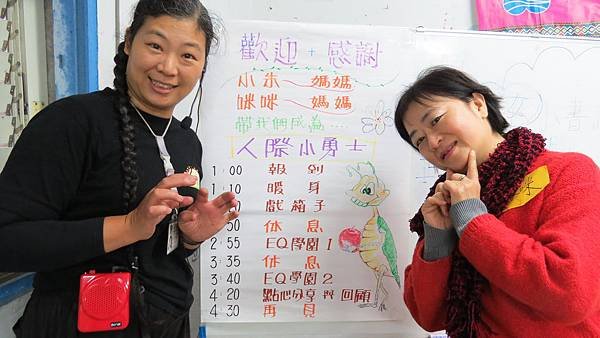 歡迎+感謝
小朱~媽媽
咪咪~媽媽
帶我們成為....
人際小勇士
1:00 報到
1:10 暖身
戲箱子
50 休息
2:55 EQ學園1
3:35 休息
3:40 EQ學園2
4:20 點心分享與回顧
4:30 再見